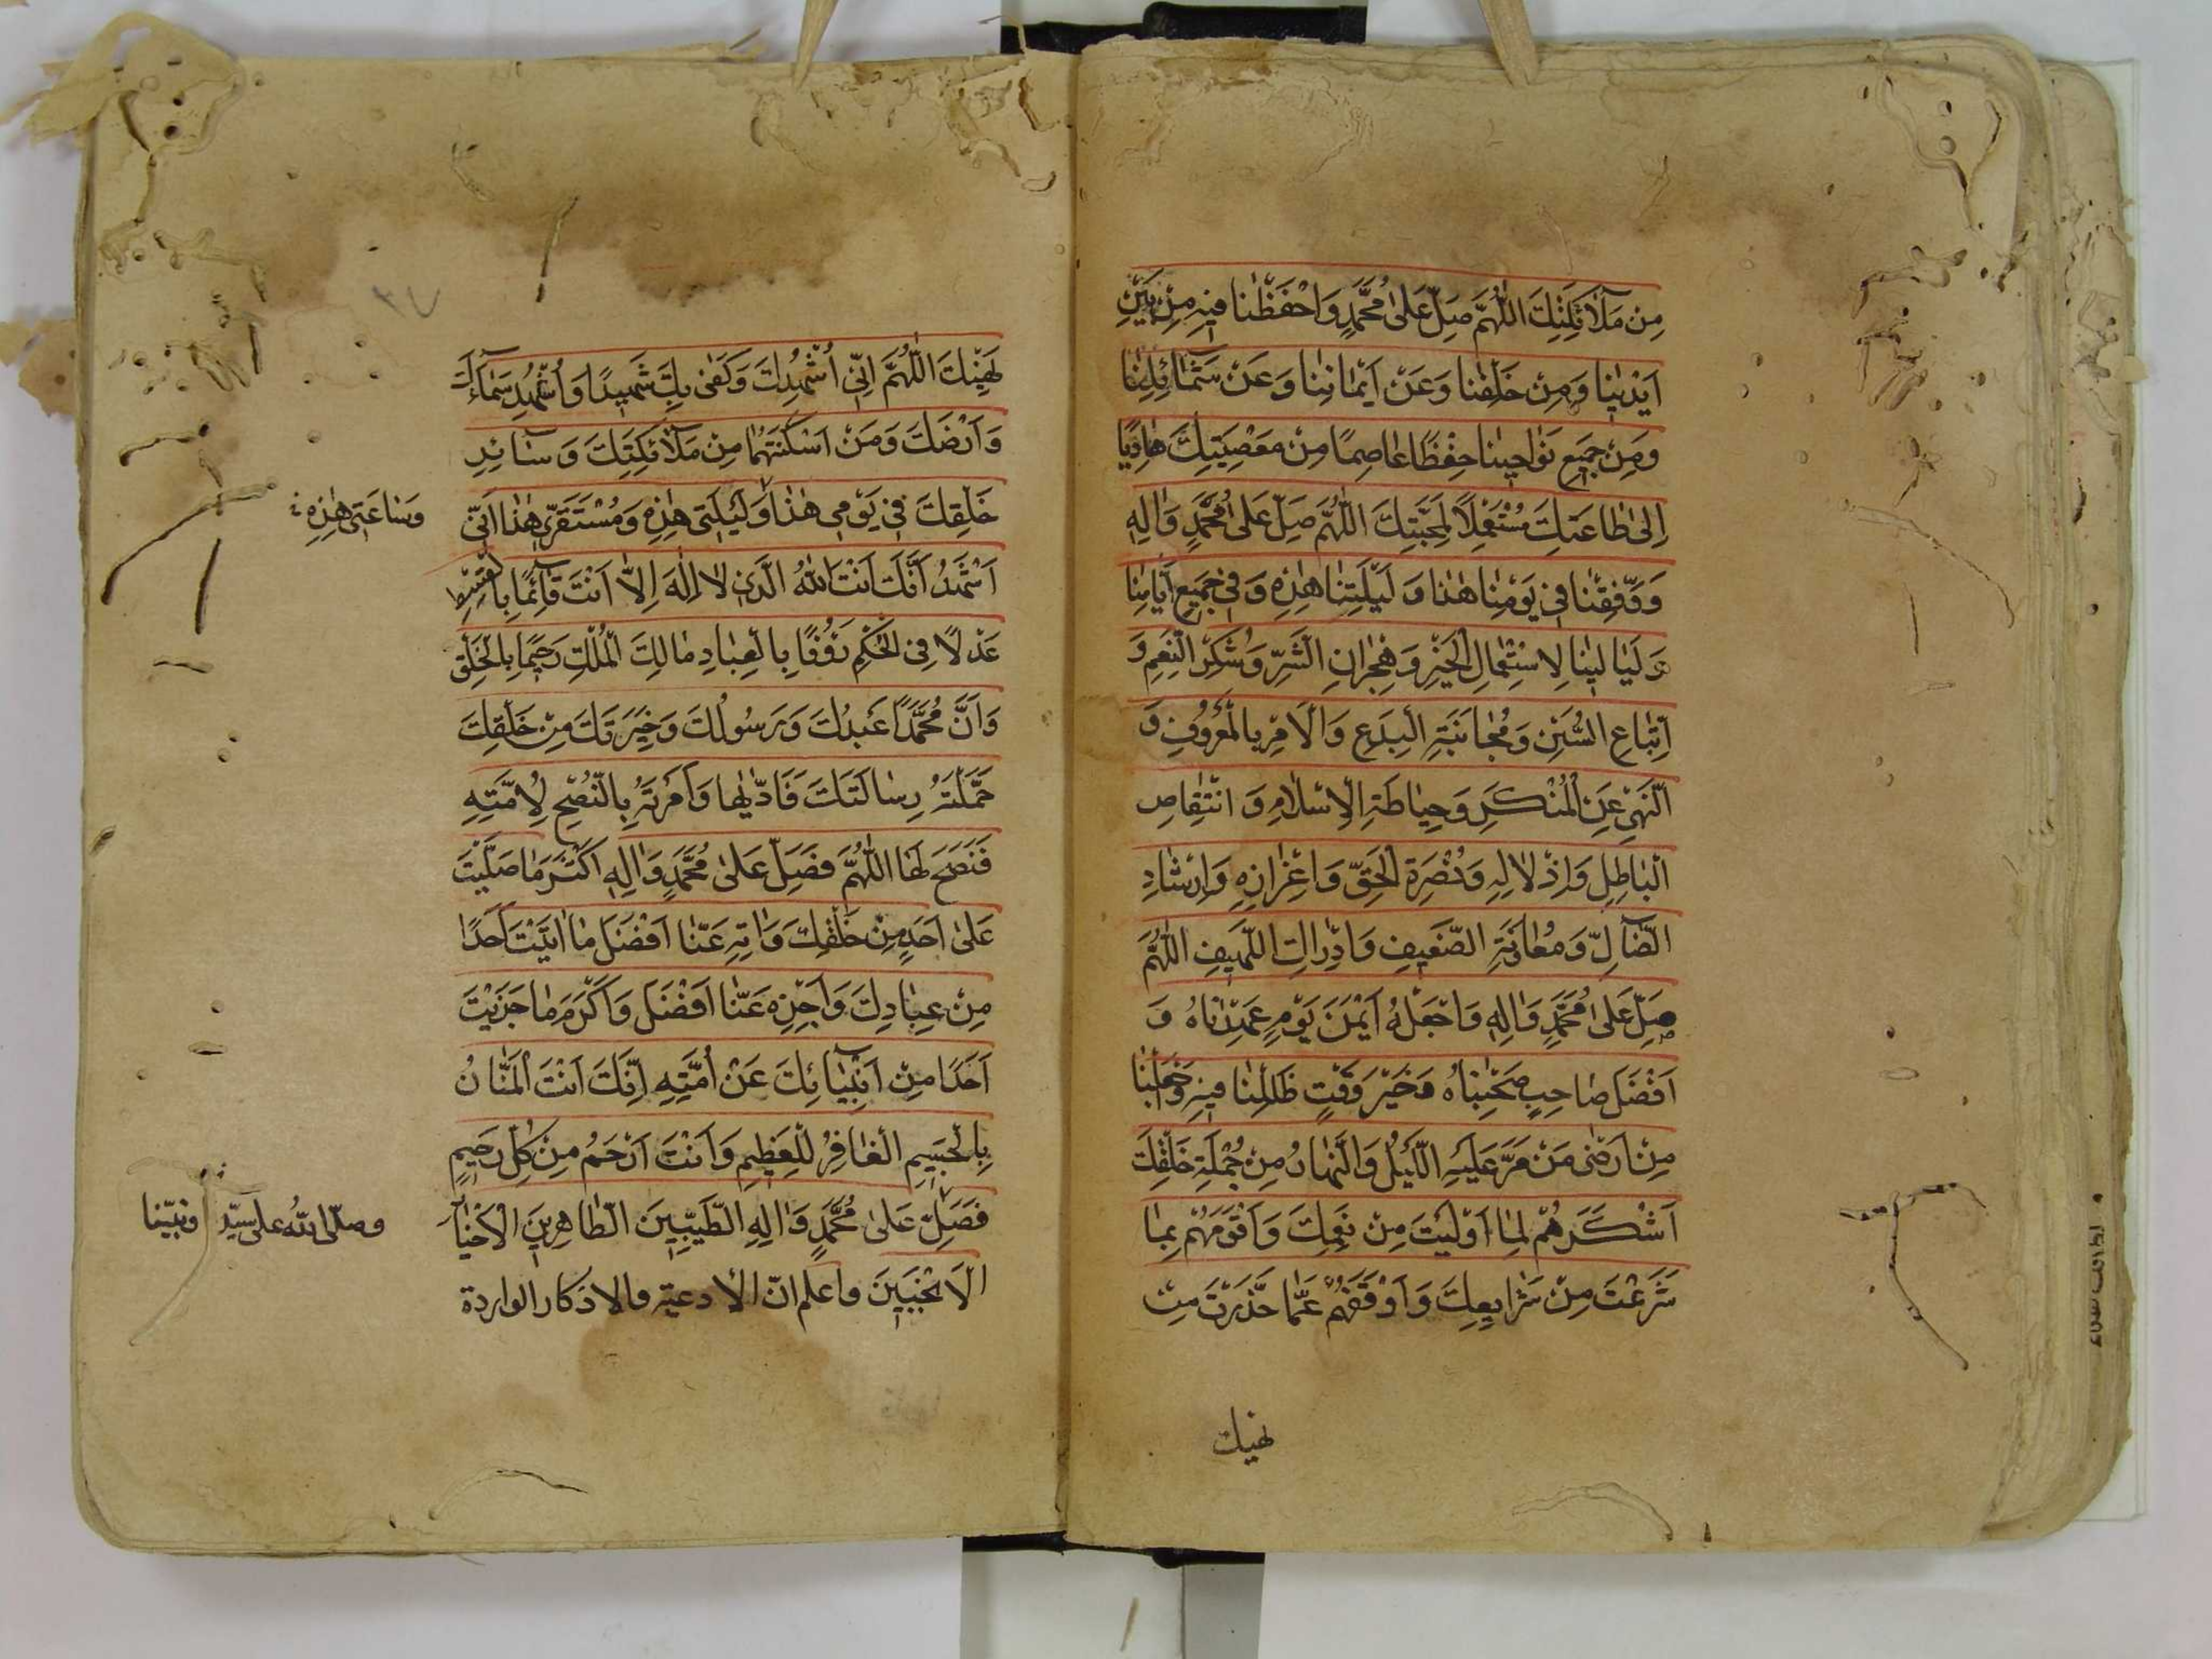 مِنْ مَلَآئِكَتِكَ اَللّٰهُمَّ صَلِّ عَلىٰ مُحَمَّدٍ وَاحْفَظْنا فيهِ مِنْ بَيْنِ
اَيْدينا وَمِنْ خَلْفِنا وَعَنْ اَيْمانِنا وَعَنْ شَمآئِلِنا
وَمِنْ جَميعِ نَواحينا حِفْظًا عاصِمًا مِنْ مَعْصِيَتِكَ هادِيًا
اِلىٰ طاعَتِكَ مُسْتَعْمِلًا لِمَحَبَّتِكَ اَللّٰهُمَّ صَلِّ عَلىٰ مُحَمَّدٍ وَاٰلِهِ
وَوَفِّقْنا في يَوْمِنا هٰذا وَ لَيْلَتِنا هٰذِهِ وَفي جَميعِ اَيّامِنا
وَلَيالينا لِاسْتِعْمالِ الْخَيْرِ وَهِجْرانِ الشَّرِّ وَشُكْرِ النِّعَمِ وَ
اتِّباعِ السُّنَنِ وَمُجانَبَةِ الْبِدَعِ وَالْاَمْرِ بِالْمَعْرُوفِ وَ
النَّهْيِ عَنِ الْمُنْكَرِ وَحِياطَةِ الْاِسْلامِ وَ انْتِقاصِ
الْباطِلِ وَاِذْلالِهِ وَنُصْرَةِ الْحَقِّ وَاِعْزازِهِ وَاِرْشادِ
الضّآلِّ وَمُعاوَنَةِ الضَّعيفِ وَاِدْراكِ اللَّهيفِ اَللّٰهُمَّ
صَلِّ عَلىٰ مُحَمَّدٍ وَاٰلِهِ وَاجْعَلْهُ اَيْمَنَ يَوْمٍ عَهِدْناهُ وَ
اَفْضَلَ صاحِبٍ صَحِبْناهُ وَخَيْرَ وَقْتٍ ظَلِلْنا فيهِ وَاجْعَلْنا
مِنْ اَرْضىٰ مَنْ مَرَّ عَلَيْهِ اللَّيْلُ وَالنَّهارُ مِنْ جُمْلَةِ خَلْقِكَ
اَشْكَرَهُمْ لِما اَوْلَيْتَ مِنْ نِعَمِكَ وَاَقْوَمَهُمْ بِما
شَرَعْتَ مِنْ شَرايِعِكَ وَاَوْقَفَهُمْ عَمّا حَذَّرْتَ مِنْ
نهيك
٣٧
نَهْيِكَ اَللّٰهُمَّ اِنّي اُشْهِدُكَ وَكَفىٰ بِكَ شَهيدًا وَاُشْهِدُ سَمآءَكَ
وَاَرْضَكَ وَمَنْ اَسْكَنْتَهُما مِنْ مَلآئِكَتِكَ وَ سآئِرِ
خَلْقِكَ في يَوْمي هٰذا وَلَيْلَتي هٰذِهِ وَمُسْتَقَرّي هٰذا اَنّي
وَساعَتي هٰذِهِ
اَشْهَدُ اَنَّكَ اَنْتَ اللّٰهُ الَّذي لا اِلٰهَ اِلّا اَنْتَ قآئِمًا بِالْقِسْطِ
عَدْلًا فِي الْحُكْمِ رَؤُفًا بِالْعِبادِ مالِكَ الْمُلْكِ رَحيمًا بِالْخَلْقِ
وَاَنَّ مُحَمَّدًا عَبْدُكَ وَرَسُولُكَ وَخِيَرَتُكَ مِنْ خَلْقِكَ
حَمَّلْتَهُ رِسالَتَكَ فَاَدّٰيها وَاَمَرْتَهُ بِالنُّصْحِ لِاُمَّتِهِ
فَنَصَحَ لَها اَللّٰهُمَّ فَصَلِّ عَلىٰ مُحَمَّدٍ وَاٰلِهِ اَكْثَرَ ما صَلَّيْتَ
عَلىٰ اَحَدٍ مِنْ خَلْقِكَ وَاٰتِهِ عَنّا اَفْضَلَ ما اٰتَيْتَ اَحَدًا
مِنْ عِبادِكَ وَاجْزِهِ عَنّا اَفْضَلَ وَاَكْرَمَ ما جَزَيْتَ
اَحَدًا مِنْ اَنْبِيآئِكَ عَنْ اُمَّتِهِ اِنَّكَ اَنْتَ الْمَنّانُ
بِالْجَسيمِ الْغافِرُ لِلْعَظيمِ وَاَنْتَ اَرْحَمُ مِنْ كُلِّ رَحيمٍ
فَصَلِّ عَلىٰ مُحَمَّدٍ وَاٰلِهِ الطَّيِّبينَ الطّاهِرينَ الْاَخْيارِ
وصلّى اللّٰه على سيّد ونبيّنا
الْاَنْجَبينَ واعلم انّ الأدعية والاذكار الواردة